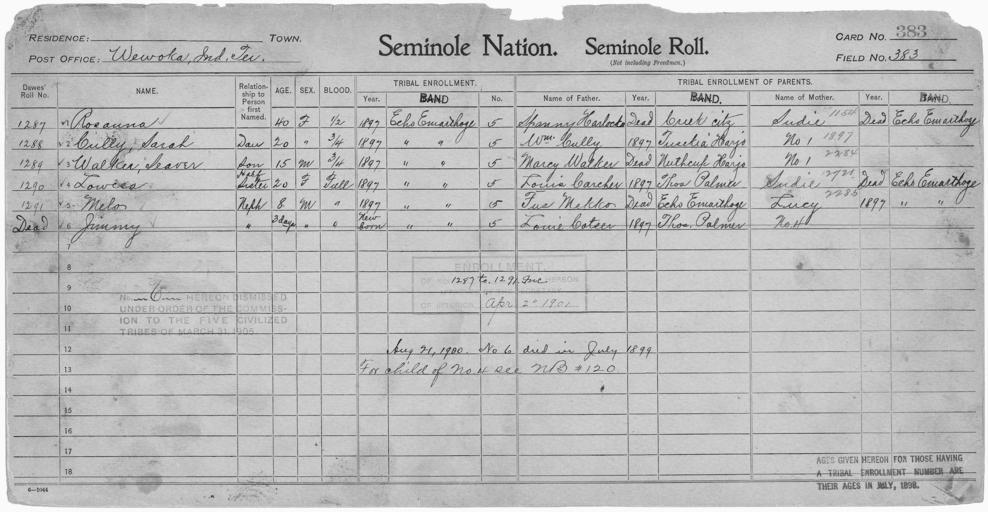 RESIDENCE: TOWN.
POST OFFICE: Wewoka, Ind. Ter.
Seminole Nation. Seminole Roll.
(Not including Freedmen.)
CARD NO. 383
FIELD NO. 383
Dawes' Roll No. NAME. Relationship to Person first Named. AGE. SEX. BLOOD. TRIBAL ENROLLMENT. TRIBAL ENROLLMENT OF PARENTS.
Year. BAND No. Name of Father. Year. BAND. Name of Mother. Year. BAND.
1287 1 Rosanna 40 F 1/2 1897 Echo Emarthoge 5 Spanny Harlocko Dead Creek city Sudie Dead Echo Emarthoge
1288 2 Cully, Sarah Dau 20 " 3/4 1897 " " 5 Wm. Cully Dead Tuskia Harjo No 1 1897
1289 3 Walker, Seaver Son 15 M 3/4 1897 " " 5 Marcy Walker Dead Nuthcup Harjo No 1 2284
1290 4 Lowesa Half Sister 20 F Full 1897 " " 5 Louis Carcher 1897 Thos Palmer Sudie Dead Echo Emarthoge
1291 5 Melo Neph 8 M " 1897 " " 5 Fus Melko Dead Echo Emarthoge Lucy 2285 1897 " "
Dead 6 Jimmy " 3 days " " New Born " " 5 Louie Cotser 1897 Thos. Palmer No. 4
7
8
ENROLLMENT
1287 to 1291 Inc. HEREON
9
OF INTERIOR Apr 2" 1901
10
No. 6 HEREON DISMISSED
UNDER ORDER OF THE COMMISSION
TO THE FIVE CIVILIZED
TRIBES OF MARCH 31, 1905.
11
12 Aug 21, 1900. No 6 died in July 1899
13 For child of No. 4 see NB #120
14
15
16
17
18
AGES GIVEN HEREON FOR THOSE HAVING
A TRIBAL ENROLLMENT NUMBER ARE
THEIR AGES IN JULY, 1898.